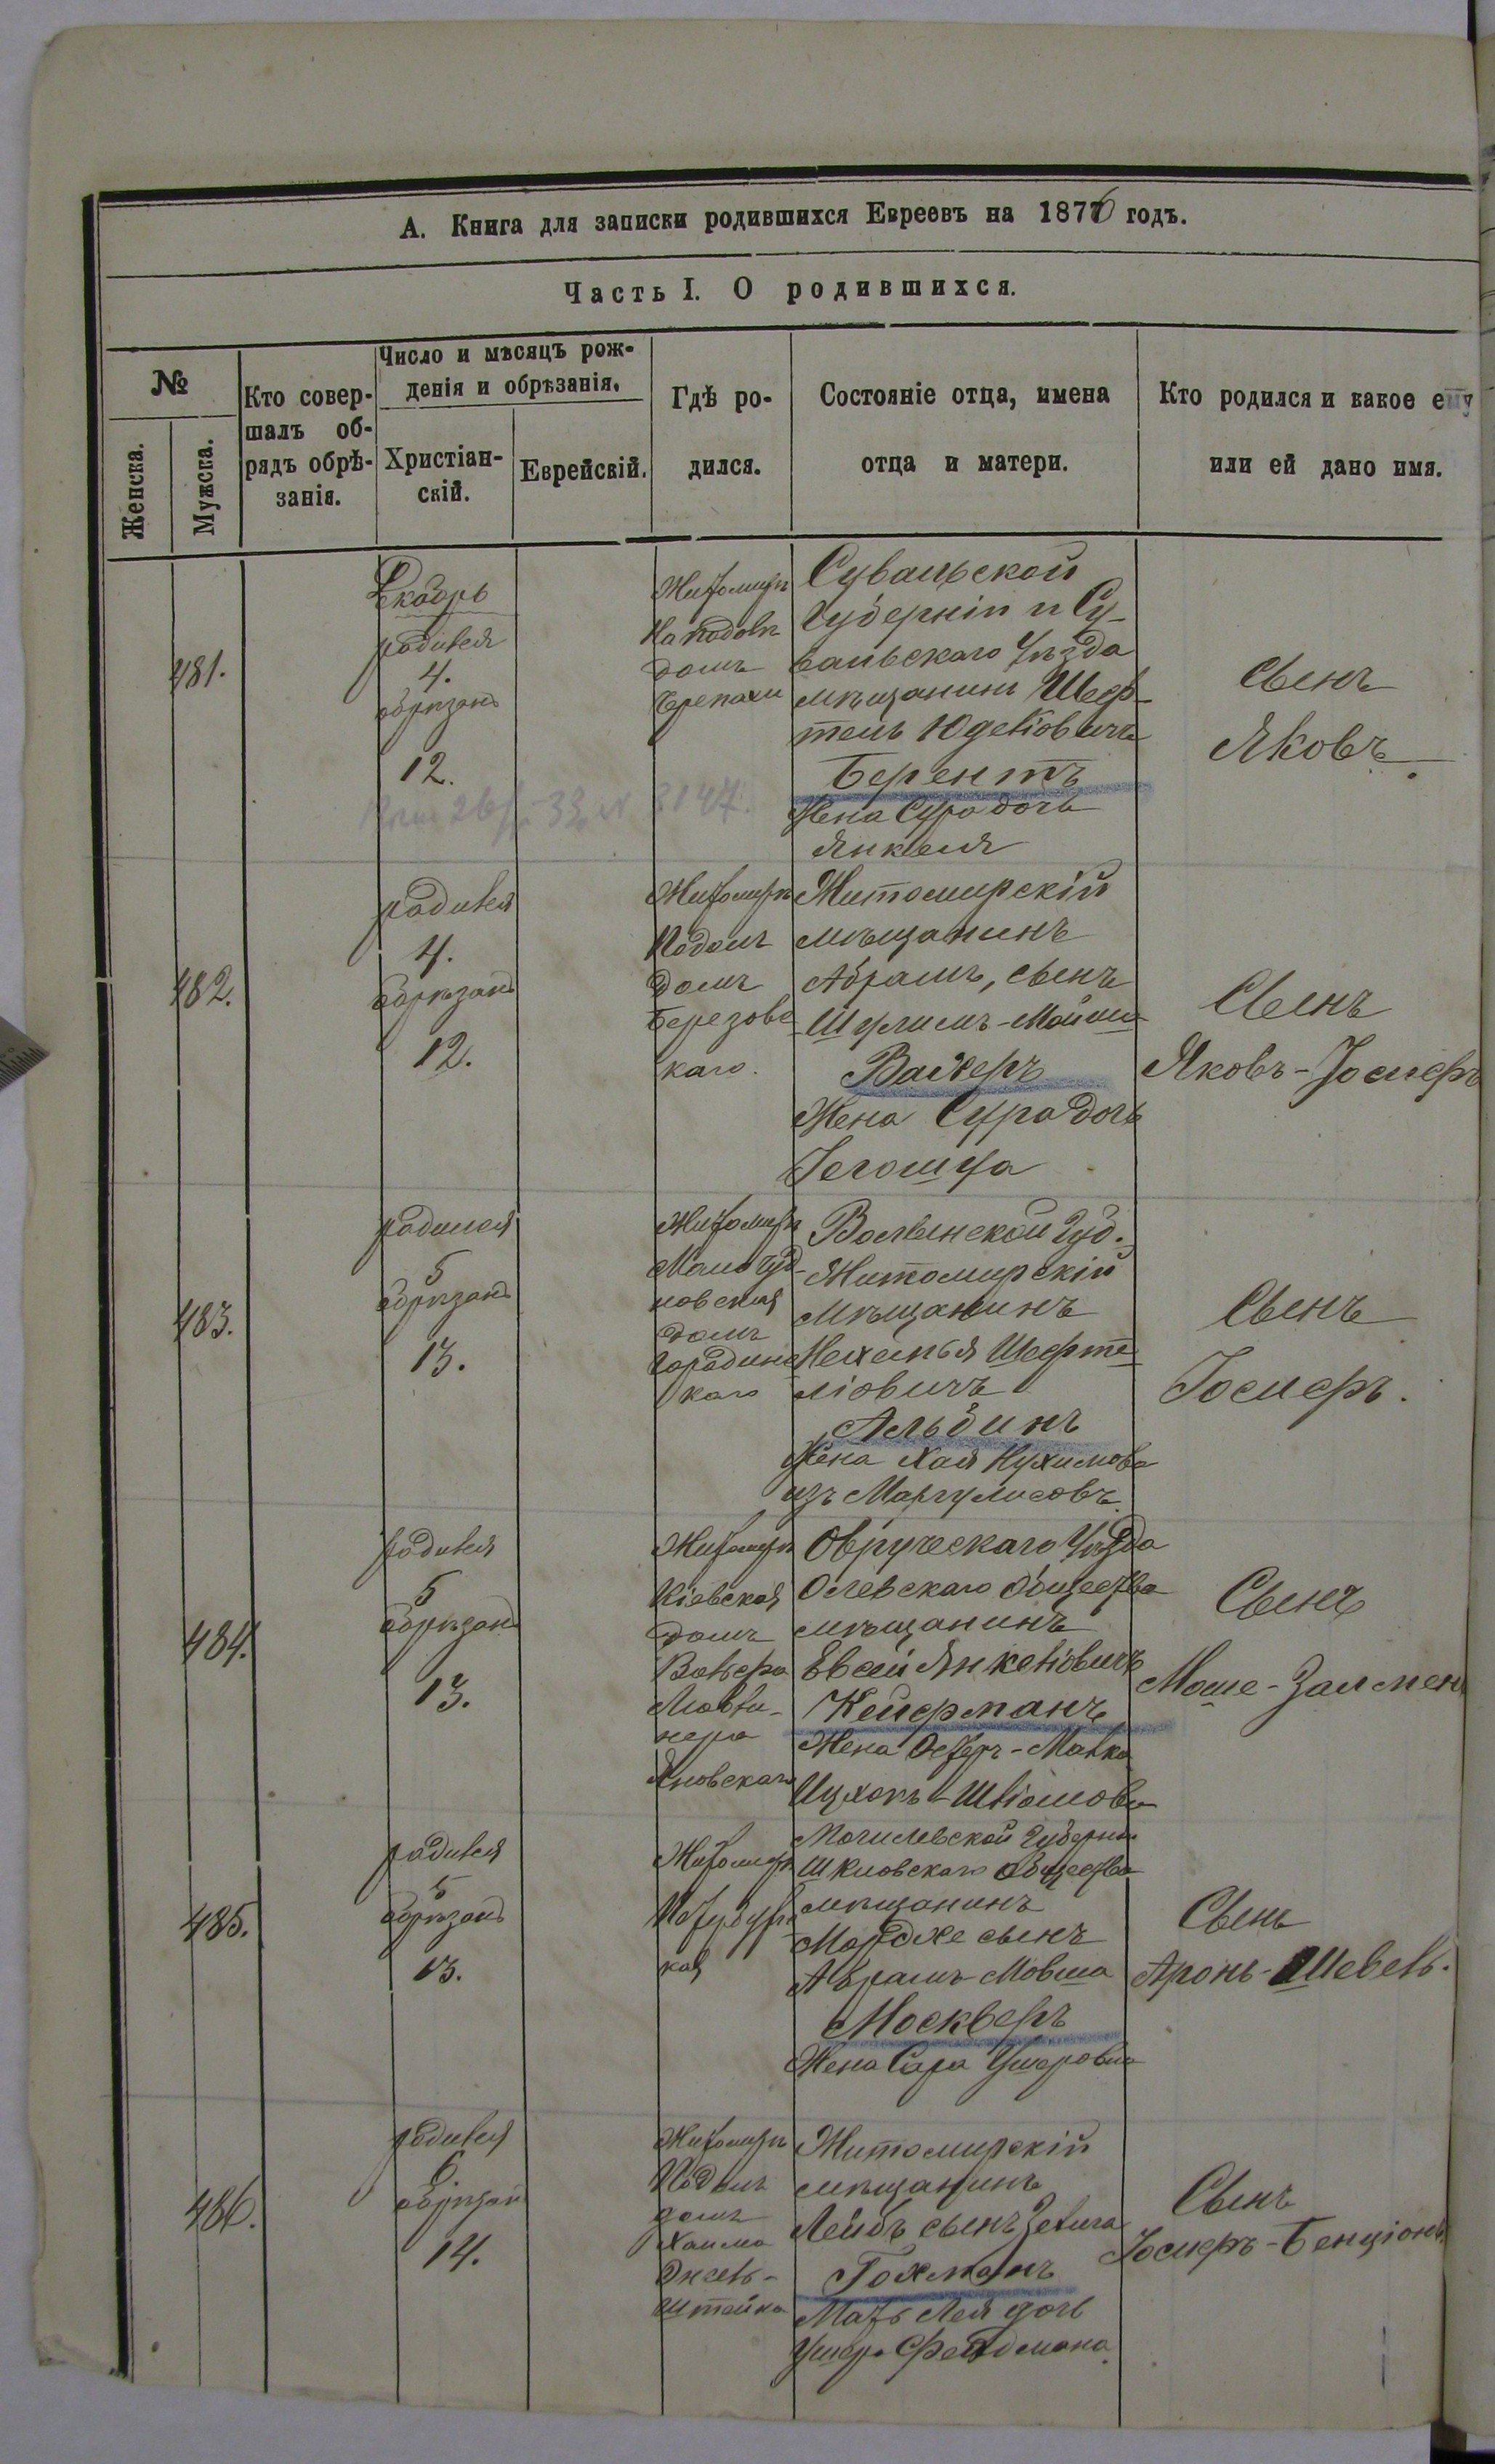 А. Книга для записки родившихся Евреевъ на 1876 годъ.
Часть I. О родившихся.
№
Женска.
Мужска.
Кто совер-
шалъ об-
рядъ обрѣ-
занія.
Число и мѣсяцъ рож-
денія и обрѣзанія.
Христіан-
скій.
Еврейскій.
Гдѣ ро-
дился.
Состояніе отца, имена
отца и матери.
Кто родился и какое ему
или ей дано имя.
481.
Декабрь
родился
4.
обрѣзанъ
12.
Житомиръ
домъ
Черепахи
Сувальской
Губерніи и Су-
вальскаго Уѣзда
мѣщанинъ Шеф-
тель Юделіовичъ
Берентъ
Жена Сура дочь
Янкеля
Сынъ
Яковъ
482.
родился
4.
обрѣзанъ
12.
Житомиръ
Подолъ
домъ
Березовс
каго.
Житомирскій
мѣщанинъ
Абрамъ, сынъ
Шулимъ-Мойши
Вахеръ
Жена Сура дочь
Іегошуа
Сынъ
Яковъ-Іосифъ
483.
родился
5
обрѣзанъ
13.
Житомиръ
Мало чуд-
новская
домъ
Городинс
каго
Волынской Губ.
Житомирскій
мѣщанинъ
Нехемья Шефте
ліовичъ
Альбинъ
Жена Хая Нухимова
изъ Маргулисовъ.
Сынъ
Іосифъ.
484.
родился
5
обрѣзанъ
13.
Житомиръ
Кіевская
домъ
Яновскаго
Овруческаго Уѣзда
Олевскаго Общества
мѣщанинъ
Евсей Янкеліовичъ
Кейферманъ
Жена Эстеръ-Малка
Ицхокъ-Шліомова
Сынъ
Моше-Залмен
485.
родился
5
обрѣзанъ
13.
Житомиръ
Могилевской Губерніи
Шкловскаго общества
мѣщанинъ
Мордхе сынъ
Абрамъ-Мовша
Москверъ
Жена Сара Ушеровна
Сынъ
Аронъ-Шевель.
486.
родился
6.
обрѣзан
14.
Житомиръ
Подолъ
домъ
Хаима
штейна
Житомирскій
мѣщанинъ
Лейбъ сынъ Зелига
Гохманъ
Мать Лея дочь
Ушера Фельдмана.
Сынъ
Іосифъ-Бенціонъ